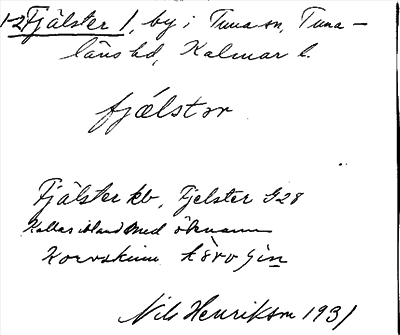 1-2 Fjälster 1, by i Tuna sn, Tuna-
läns hd, Kalmar l.
fjälstər
Fjälster kb, Fjelster G28
Kallas ibland med öknamn
Korvskinn
Nils Henrikson 1931